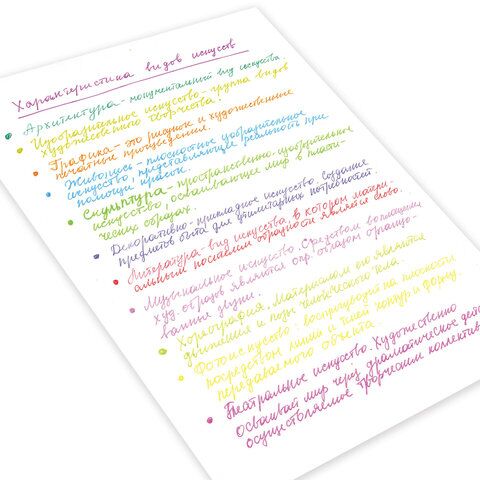 Характеристика видов искусств
Архитектура - монументальный вид искусства.
Изобразительное искусство - группа видов
художественного творчества:
Графика - это рисунок и художественные
печатные произведения.
Живопись - плоскостное изобразительное
искусство, представляющее реальность при
помощи красок.
Скульптура - пространственно. изобразительное
искусство, осваивающее мир в пласти-
ческих образах.
Декоративно-прикладное искусство. Создание
предметов быта для утилитарных потребностей.
Литература - вид искусства, в котором матери-
альным носителем образности является слово.
Музыкальное искусство. Средством воплощения
худ. образов являются опр. образом организо-
ванные звуки.
Хореография. Материалом ею являются
движения и позы человеческого тела.
Фотоискусство: воспроизводит на плоскости
посредством линий и теней контур и форму
передаваемого объекта.
Театральное искусство. Художественно
осваивает мир через драматическое дей
осуществляемое творческим коллектив